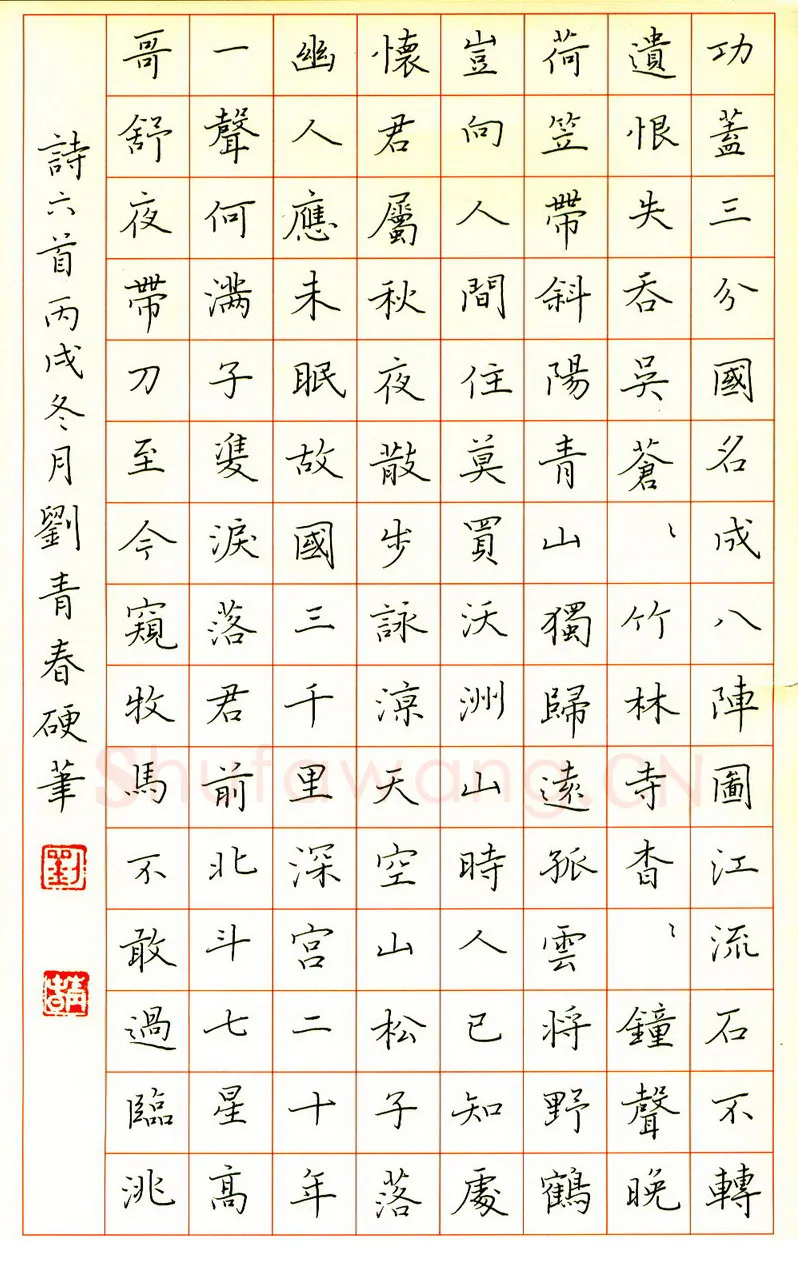 功蓋三分國名成八陣圖江流石不轉
遺恨失吞吳蒼〻竹林寺杳〻鐘聲晚
荷笠帶斜陽青山獨歸遠孤雲將野鶴
豈向人間住莫買沃洲山時人已知處
懷君屬秋夜散步詠涼天空山松子落
幽人應未眠故國三千里深宮二十年
一聲何滿子雙淚落君前北斗七星高
哥舒夜帶刀至今窺牧馬不敢過臨洮
詩六首丙戌冬月劉青春硬筆
Shufawang.CN